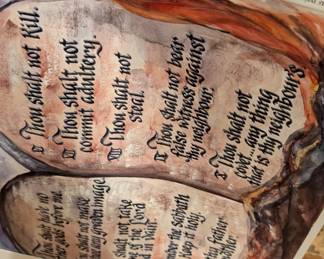 Thou shalt have no
other gods before me.
shalt not make
any graven image
shalt not take
of the Lord
in vain
the sabbath
keep it holy
thy father
VI Thou shalt not kill.
VII Thou shalt not
commit adultery.
VIII Thou shalt not
steal.
IX Thou shalt not bear
false witness against
thy neighbour.
X Thou shalt not
covet any thing
that is thy neighbour's